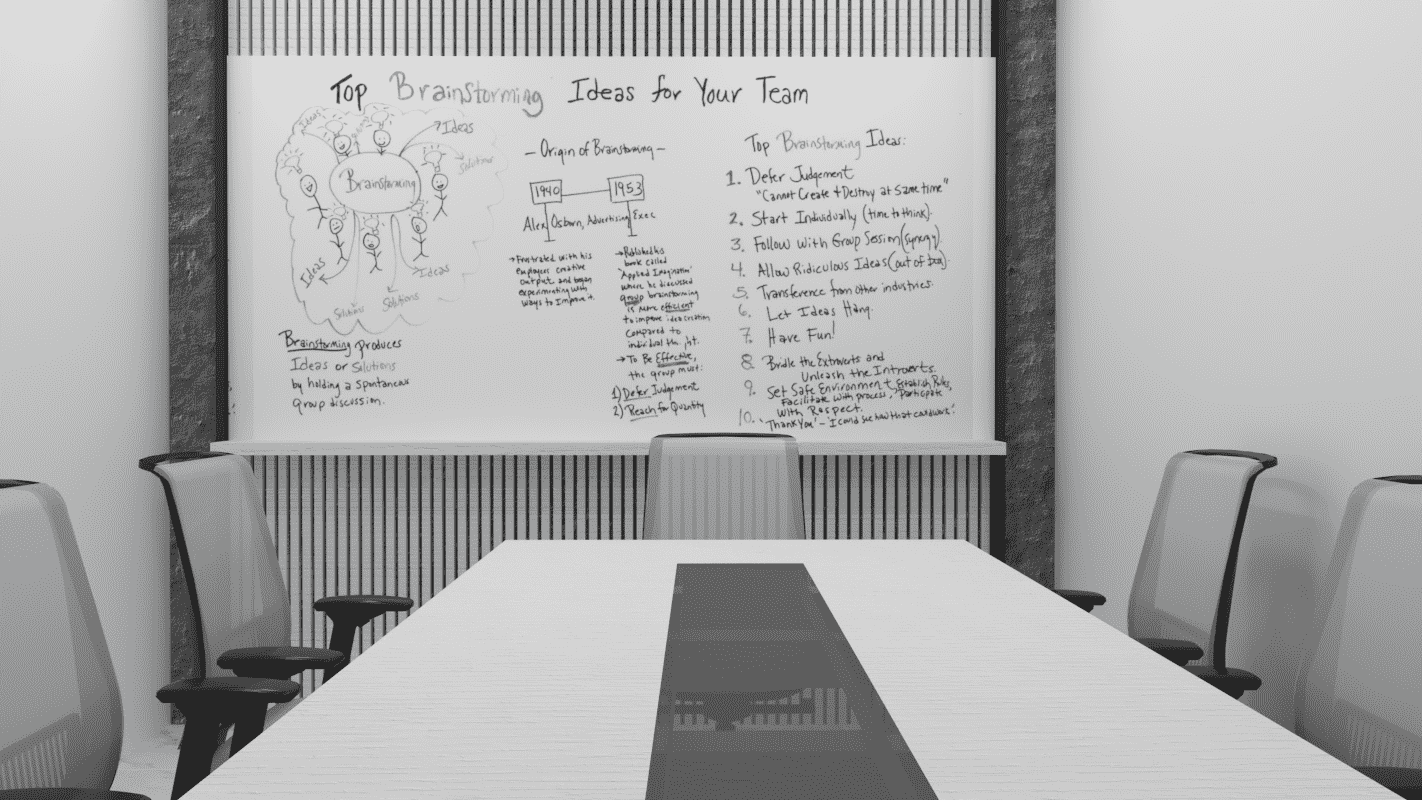 Top Brainstorming Ideas for Your Team
Ideas
Ideas
Solutions
Brainstorming
Ideas
Ideas
Solutions
Solutions
Brainstorming produces
Ideas or Solutions
by holding a spontaneous
group discussion.
- Origin of Brainstorming -
1940
1953
Alex Osborn, Advertising Exec
→ Frustrated with his
employees creative
output and began
experimenting with
ways to Improve it.
→ Published his
book called
"Applied Imagination"
where he discussed
group brainstorming
is more efficient
to improve idea creation
Compared to
individual
→ To Be Effective,
the group must:
1) Defer Judgement
2) Reach for Quantity
Top Brainstorming Ideas:
1. Defer Judgement
"Cannot Create + Destroy at Same time"
2. Start Individually (time to think).
3. Follow with Group Session (synergy).
4. Allow Ridiculous Ideas (out of box).
5. Transference from other industries.
6. Let Ideas Hang.
7. Have Fun!
8. Bridle the Extroverts and
Unleash the Introverts.
9. Set Safe Environment Establish Rules,
Facilitate with process, Participate
With Respect.
10. "Thank You" - "I could see how that could work".